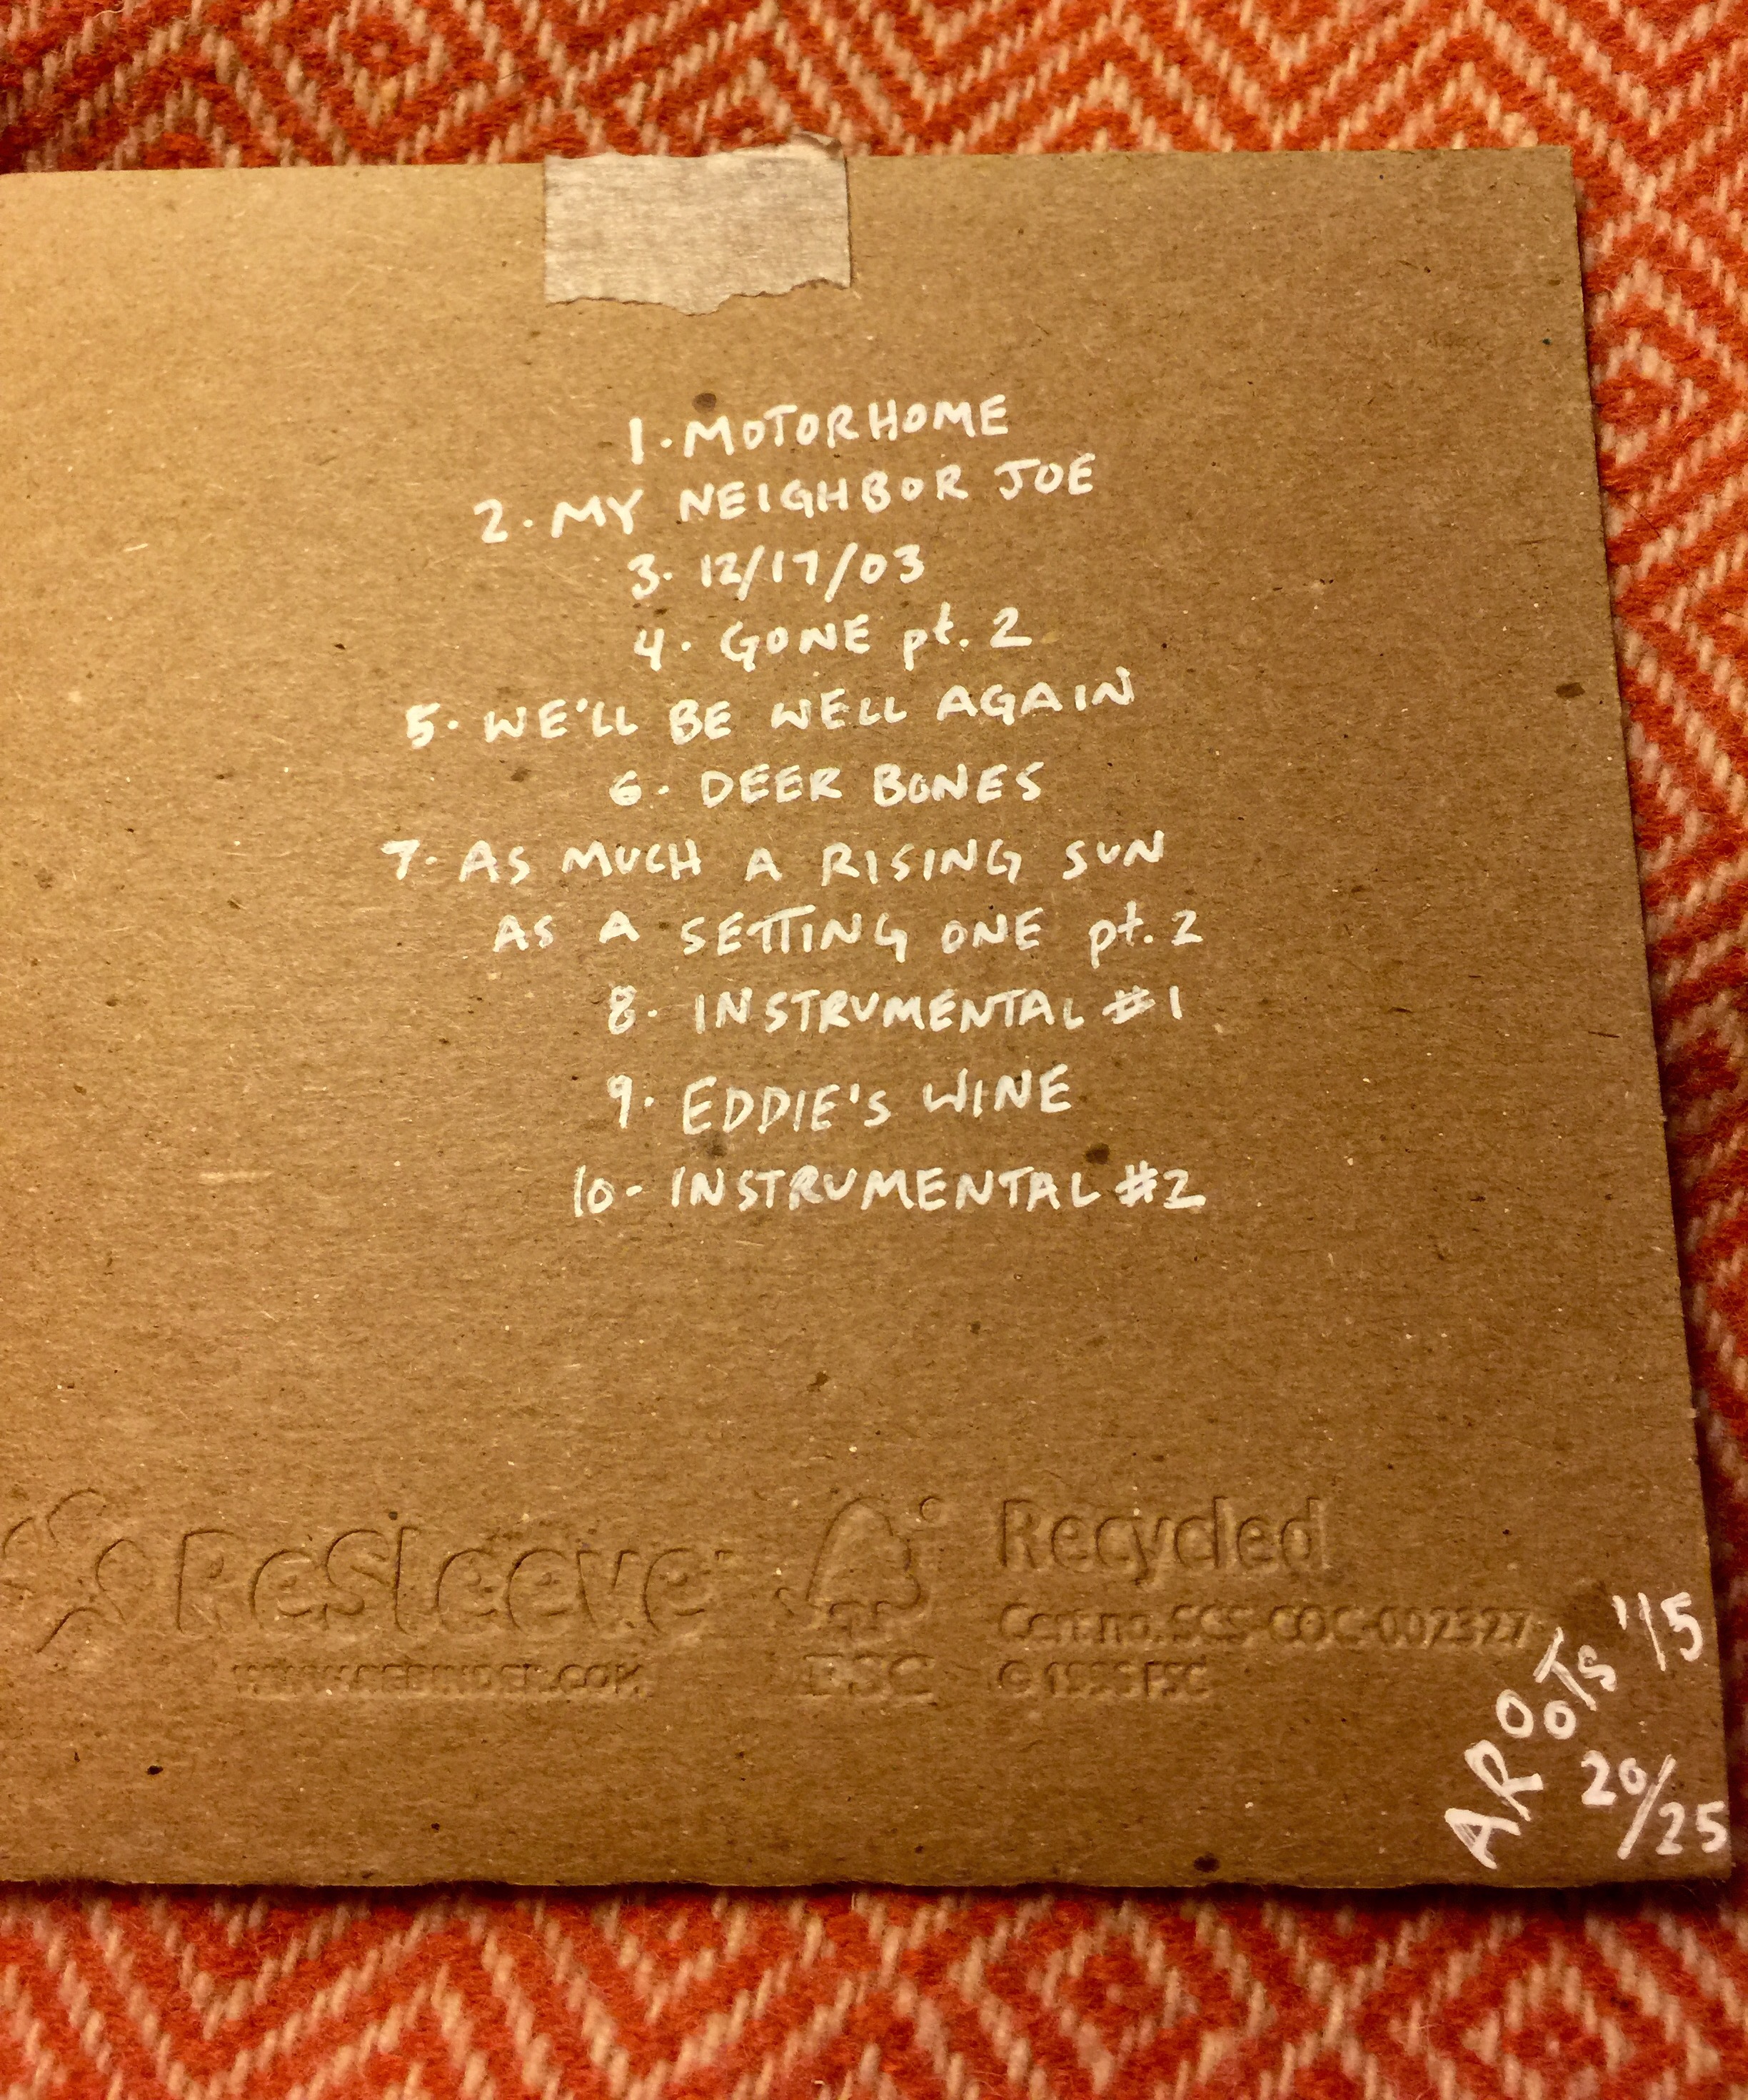 1. MOTORHOME
2. MY NEIGHBOR JOE
3. 12/17/03
4. GONE pt. 2
5. WE'LL BE WELL AGAIN
6. DEER BONES
7. AS MUCH A RISING SUN
AS A SETTING ONE pt. 2
8. INSTRUMENTAL #1
9. EDDIE'S WINE
10. INSTRUMENTAL #2
ReSleeve
FSC
Recycled
Cert no. SCS-COC-002327
© 1996 FSC
AROOTS '15
20/25